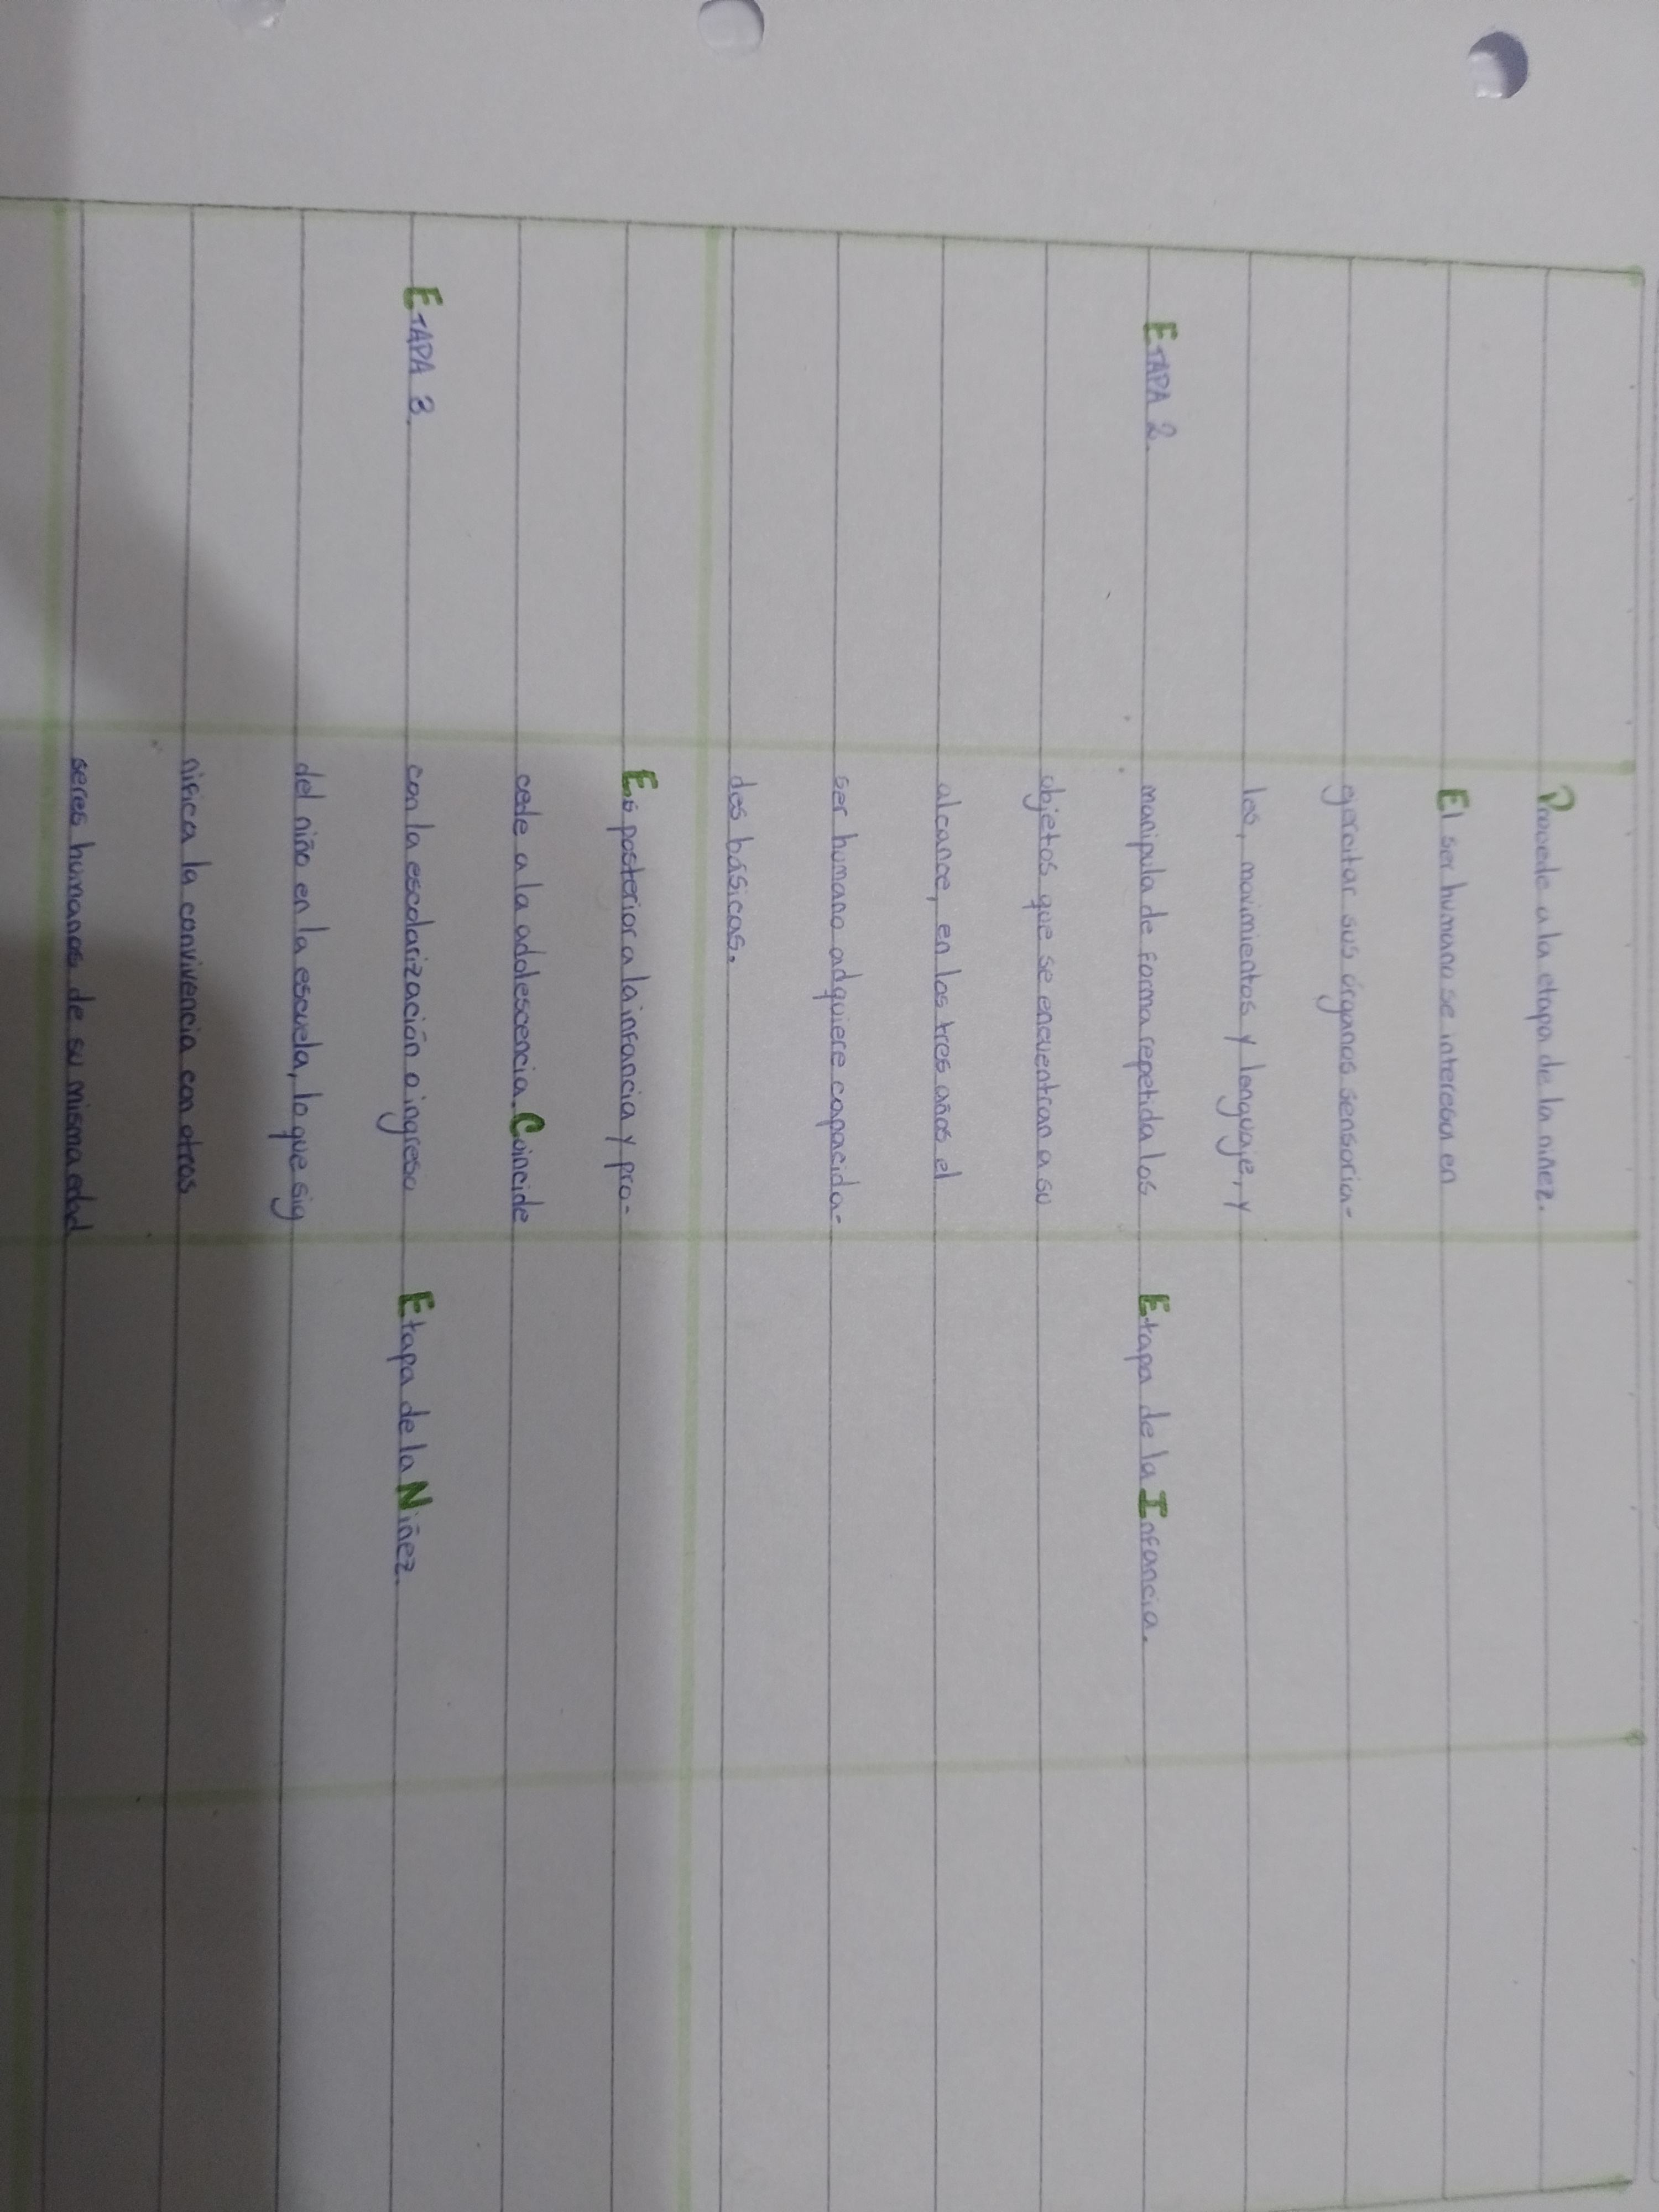 Procede a la etapa de la niñez.
El ser humano se interesa en
ejercitar sus órganos sensoria-
les, movimientos y lenguaje, y
ETAPA 2. manipula de forma repetida los Etapa de la Infancia.
objetos que se encuentran a su
alcance, en los tres años el
ser humano adquiere capacida-
des básicas.
Es posterior a la infancia y pro-
cede a la adolescencia. Coincide
ETAPA 3. con la escolarización o ingreso Etapa de la Niñez.
del niño en la escuela, lo que sig
nifica la convivencia con otros
seres humanos de su misma edad